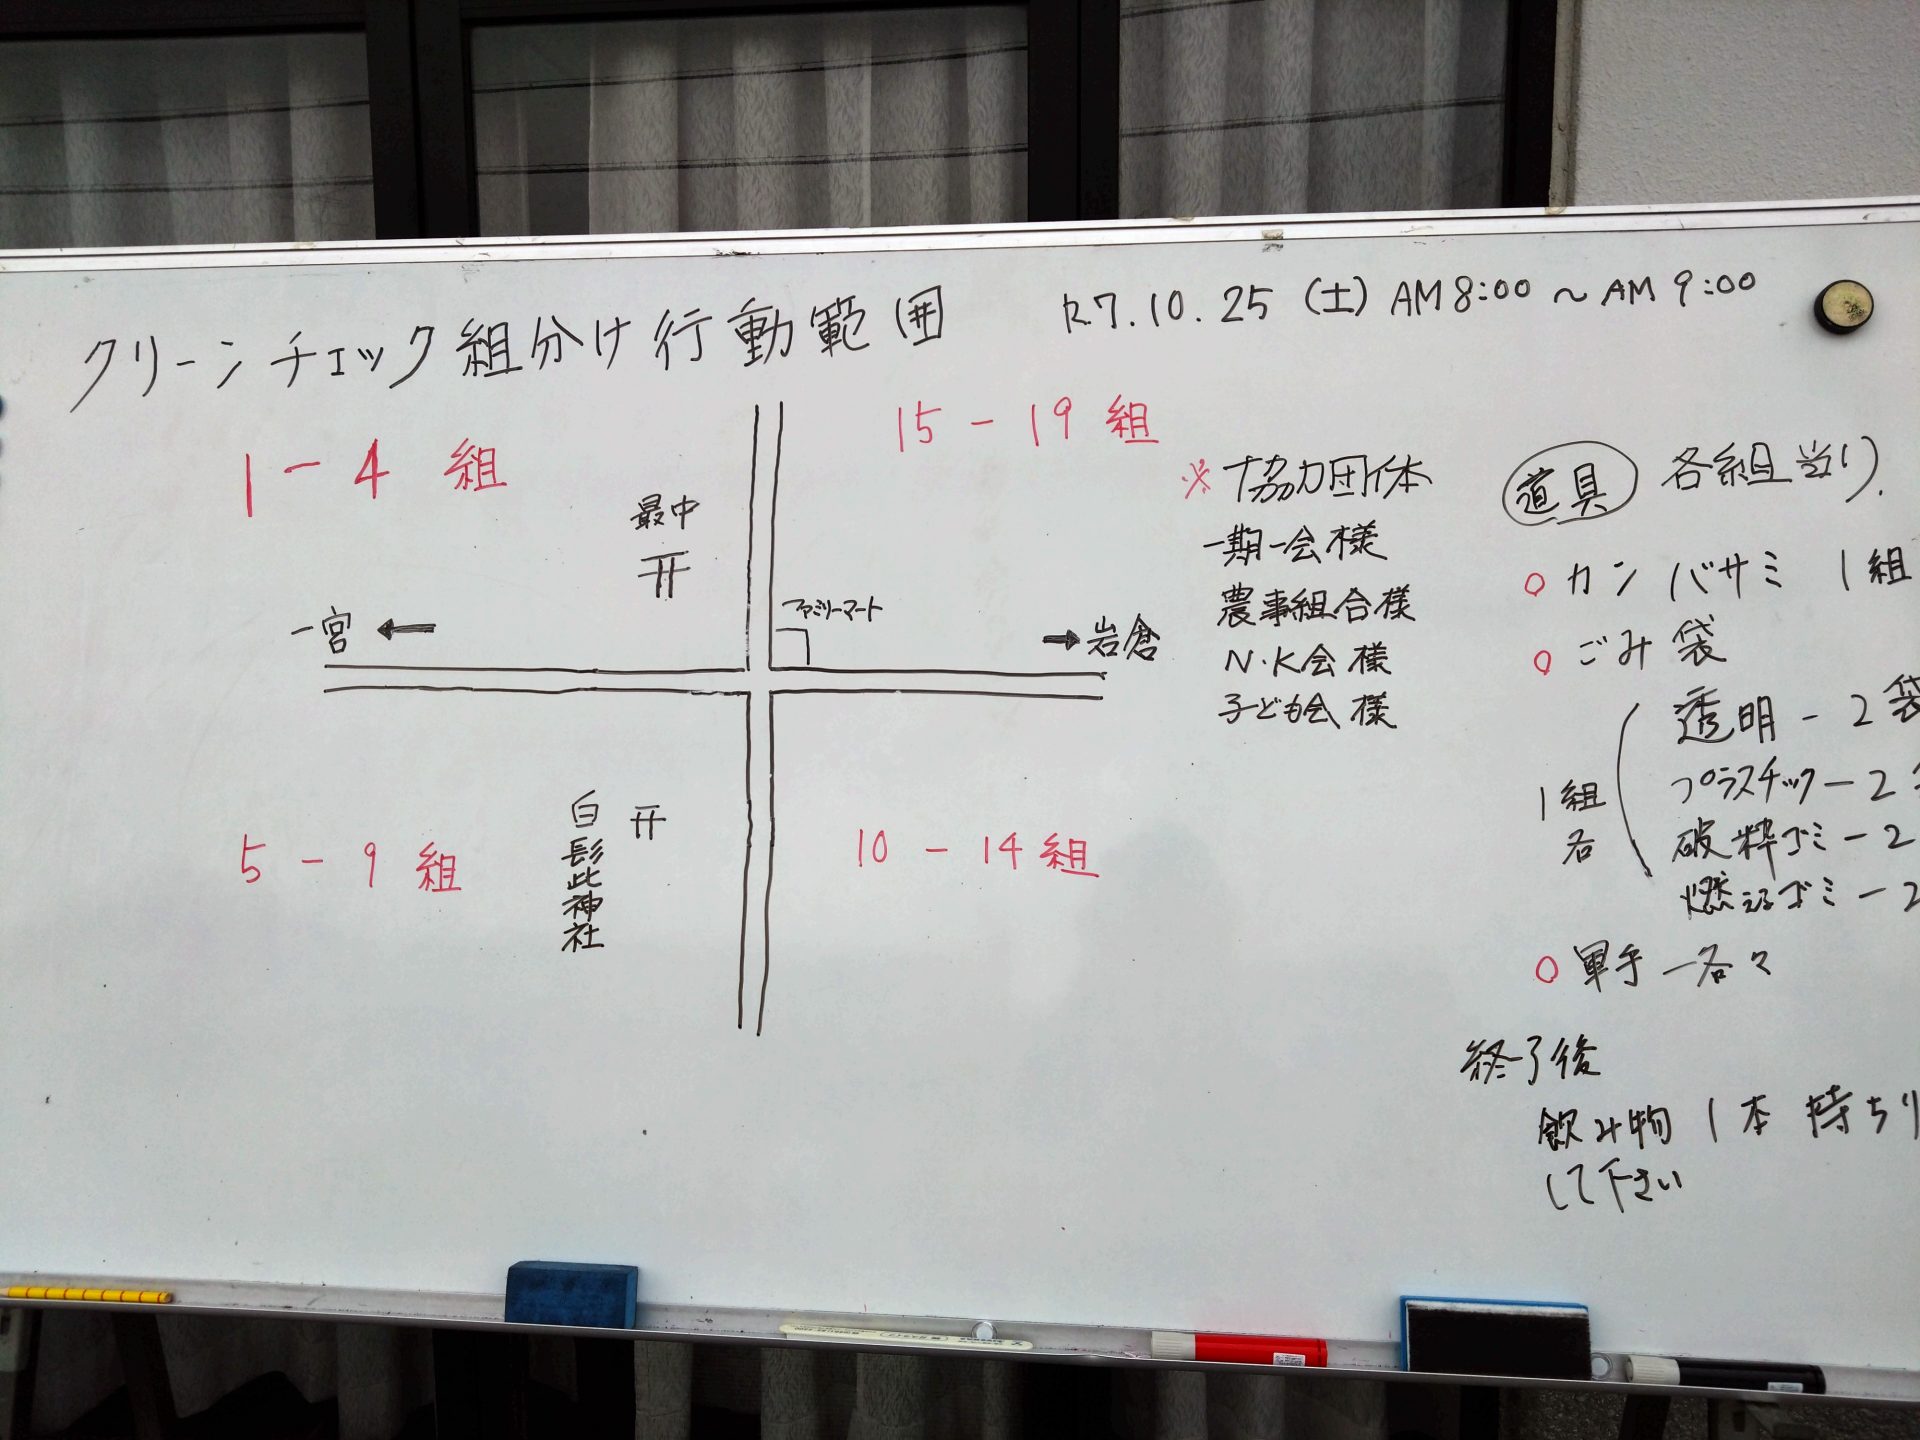 クリーンチェック組分け行動範囲 R7.10.25(土)AM8:00～AM9:00
1-4 組
15-19 組
最中
ファミリーマート
一宮
岩倉
5-9 組
白髭神社
10-14 組
※協力団体
一期一会様
農事組合様
N・K会様
子ども会様
道具 各組当り.
○カンバサミ 1組
○ごみ袋
1組
各
透明-2袋
プラスチック-2
破粋ゴミ-2
燃えるゴミ-2
○軍手-各々
終了後
飲み物1本持ち
して下さい